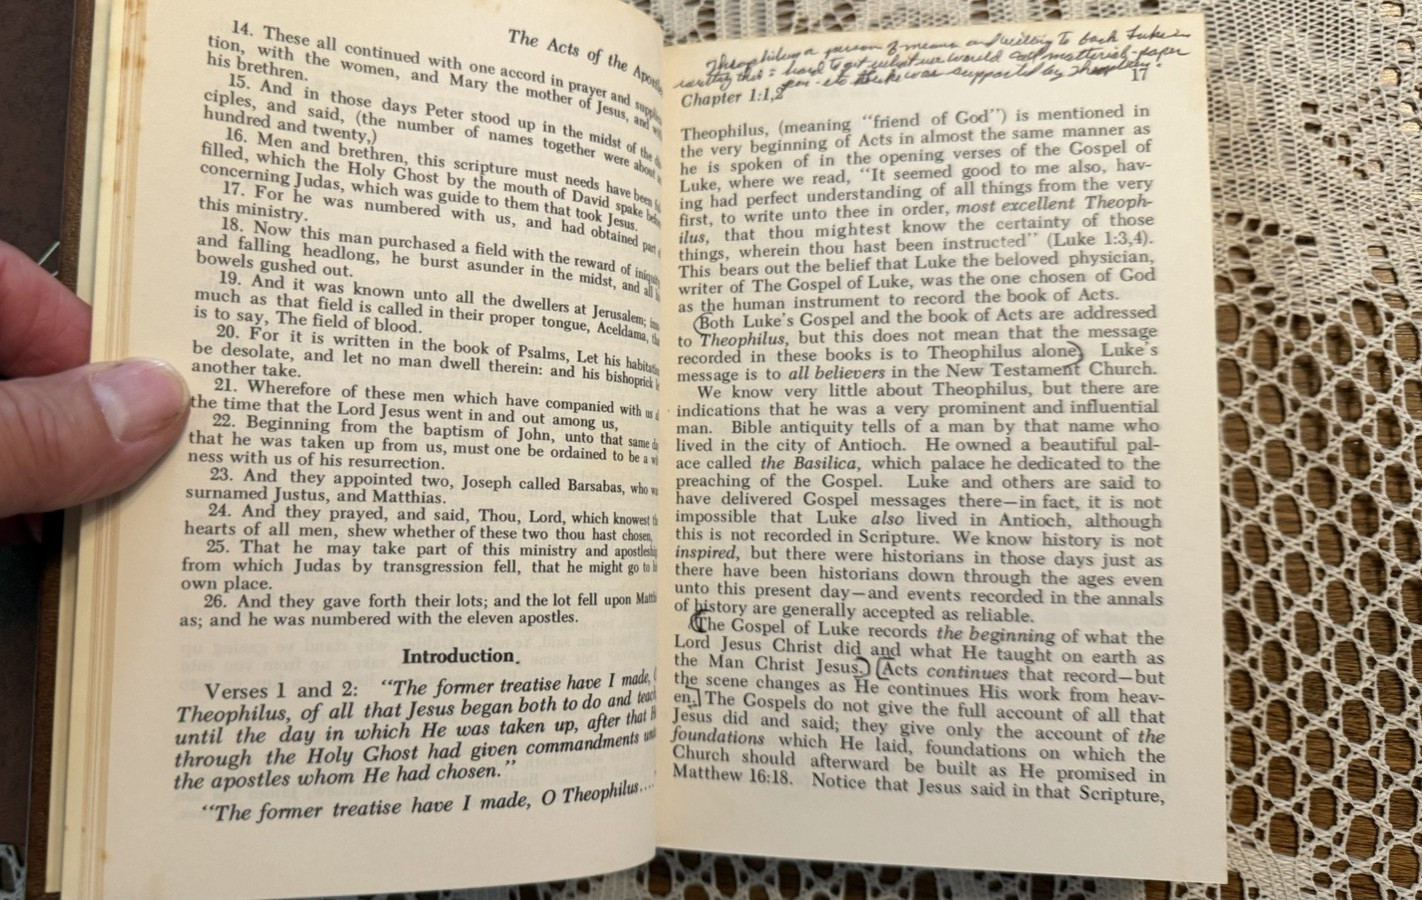 The Acts of the
14. These all continued with one accord in prayer and
tion, with the women, and Mary the mother of Jesus, and
his brethren.
15. And in those days Peter stood up in the midst of the
ciples, and said, (the number of names together were about
hundred and twenty,)
16. Men and brethren, this scripture must needs have been
filled, which the Holy Ghost by the mouth of David spake
concerning Judas, which was guide to them that took Jesus.
17. For he was numbered with us, and had obtained part
this ministry.
18. Now this man purchased a field with the reward of
and falling headlong, he burst asunder in the midst, and all
bowels gushed out.
19. And it was known unto all the dwellers at Jerusalem;
much as that field is called in their proper tongue, Aceldama,
is to say, The field of blood.
20. For it is written in the book of Psalms, Let his
be desolate, and let no man dwell therein: and his bishoprick
another take.
21. Wherefore of these men which have companied with us
the time that the Lord Jesus went in and out among us,
22. Beginning from the baptism of John, unto that same
that he was taken up from us, must one be ordained to be a
ness with us of his resurrection.
23. And they appointed two, Joseph called Barsabas, who
surnamed Justus, and Matthias.
24. And they prayed, and said, Thou, Lord, which knowest
hearts of all men, shew whether of these two thou hast chosen,
25. That he may take part of this ministry and
from which Judas by transgression fell, that he might go to
own place.
26. And they gave forth their lots; and the lot fell upon
as; and he was numbered with the eleven apostles.
Introduction
Verses 1 and 2: "The former treatise have I made,
Theophilus, of all that Jesus began both to do and
until the day in which He was taken up, after that
through the Holy Ghost had given commandments
the apostles whom He had chosen."
"The former treatise have I made, O Theophilus....
Theophilus a person of means and willing to back Luke in
writing this - hard to get what we would call material - paper
pen - etc Luke was supported by
17
Chapter 1:1,2
Theophilus, (meaning "friend of God") is mentioned in
the very beginning of Acts in almost the same manner as
he is spoken of in the opening verses of the Gospel of
Luke, where we read, "It seemed good to me also, hav-
ing had perfect understanding of all things from the very
first, to write unto thee in order, most excellent Theoph-
ilus, that thou mightest know the certainty of those
things, wherein thou hast been instructed" (Luke 1:3,4).
This bears out the belief that Luke the beloved physician,
writer of The Gospel of Luke, was the one chosen of God
as the human instrument to record the book of Acts.
Both Luke's Gospel and the book of Acts are addressed
to Theophilus, but this does not mean that the message
recorded in these books is to Theophilus alone. Luke's
message is to all believers in the New Testament Church.
We know very little about Theophilus, but there are
indications that he was a very prominent and influential
man. Bible antiquity tells of a man by that name who
lived in the city of Antioch. He owned a beautiful pal-
ace called the Basilica, which palace he dedicated to the
preaching of the Gospel. Luke and others are said to
have delivered Gospel messages there—in fact, it is not
impossible that Luke also lived in Antioch, although
this is not recorded in Scripture. We know history is not
inspired, but there were historians in those days just as
there have been historians down through the ages even
unto this present day—and events recorded in the annals
of history are generally accepted as reliable.
The Gospel of Luke records the beginning of what the
Lord Jesus Christ did and what He taught on earth as
the Man Christ Jesus. Acts continues that record—but
the scene changes as He continues His work from heav-
en. The Gospels do not give the full account of all that
Jesus did and said; they give only the account of the
foundations which He laid, foundations on which the
Church should afterward be built as He promised in
Matthew 16:18. Notice that Jesus said in that Scripture,